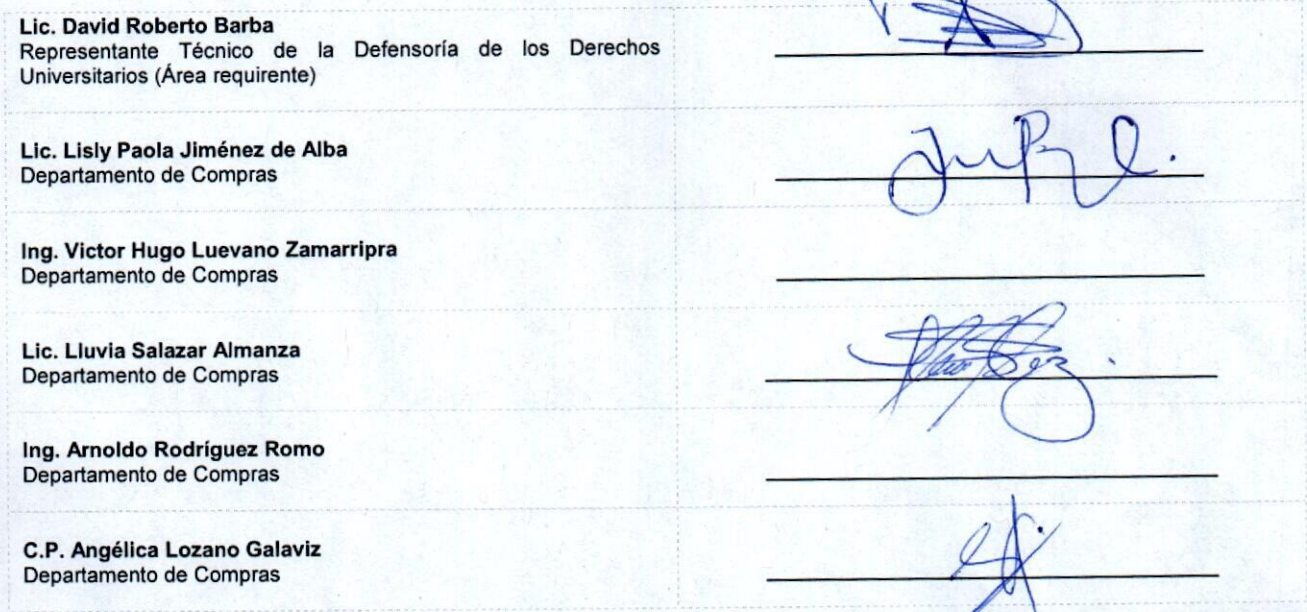 Lic. David Roberto Barba
Representante Técnico de la Defensoría de los Derechos
Universitarios (Área requirente)
Lic. Lisly Paola Jiménez de Alba
Departamento de Compras
Ing. Victor Hugo Luevano Zamarripra
Departamento de Compras
Lic. Lluvia Salazar Almanza
Departamento de Compras
Ing. Arnoldo Rodríguez Romo
Departamento de Compras
C.P. Angélica Lozano Galaviz
Departamento de Compras